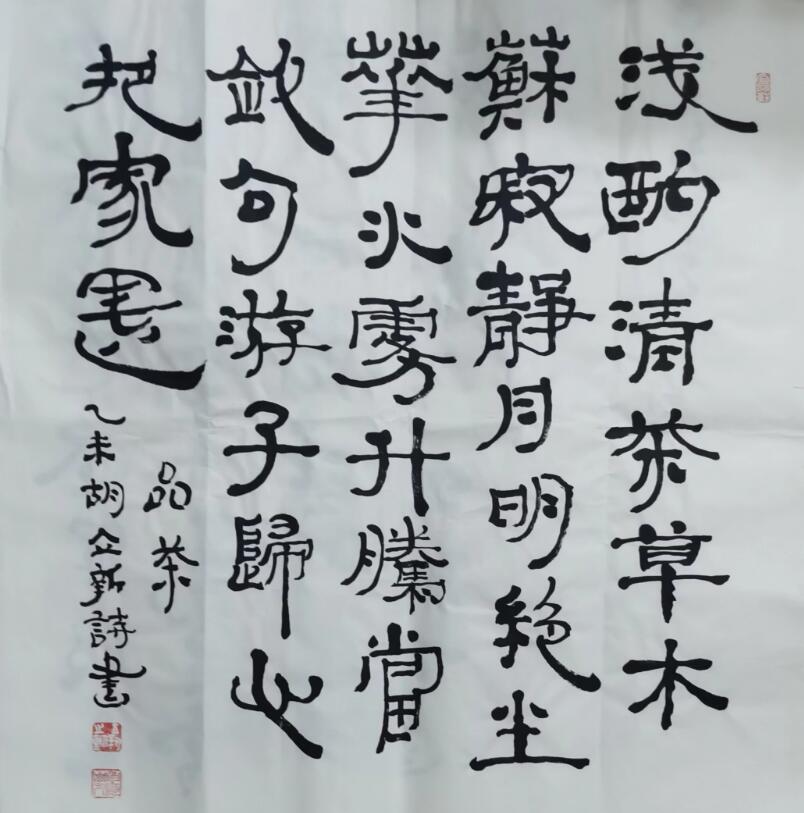 浅酌清茶草木
蘇寂靜月明絕尘
華水雾升騰當
句游子歸心
把家還
品茶
乙未胡立新詩書